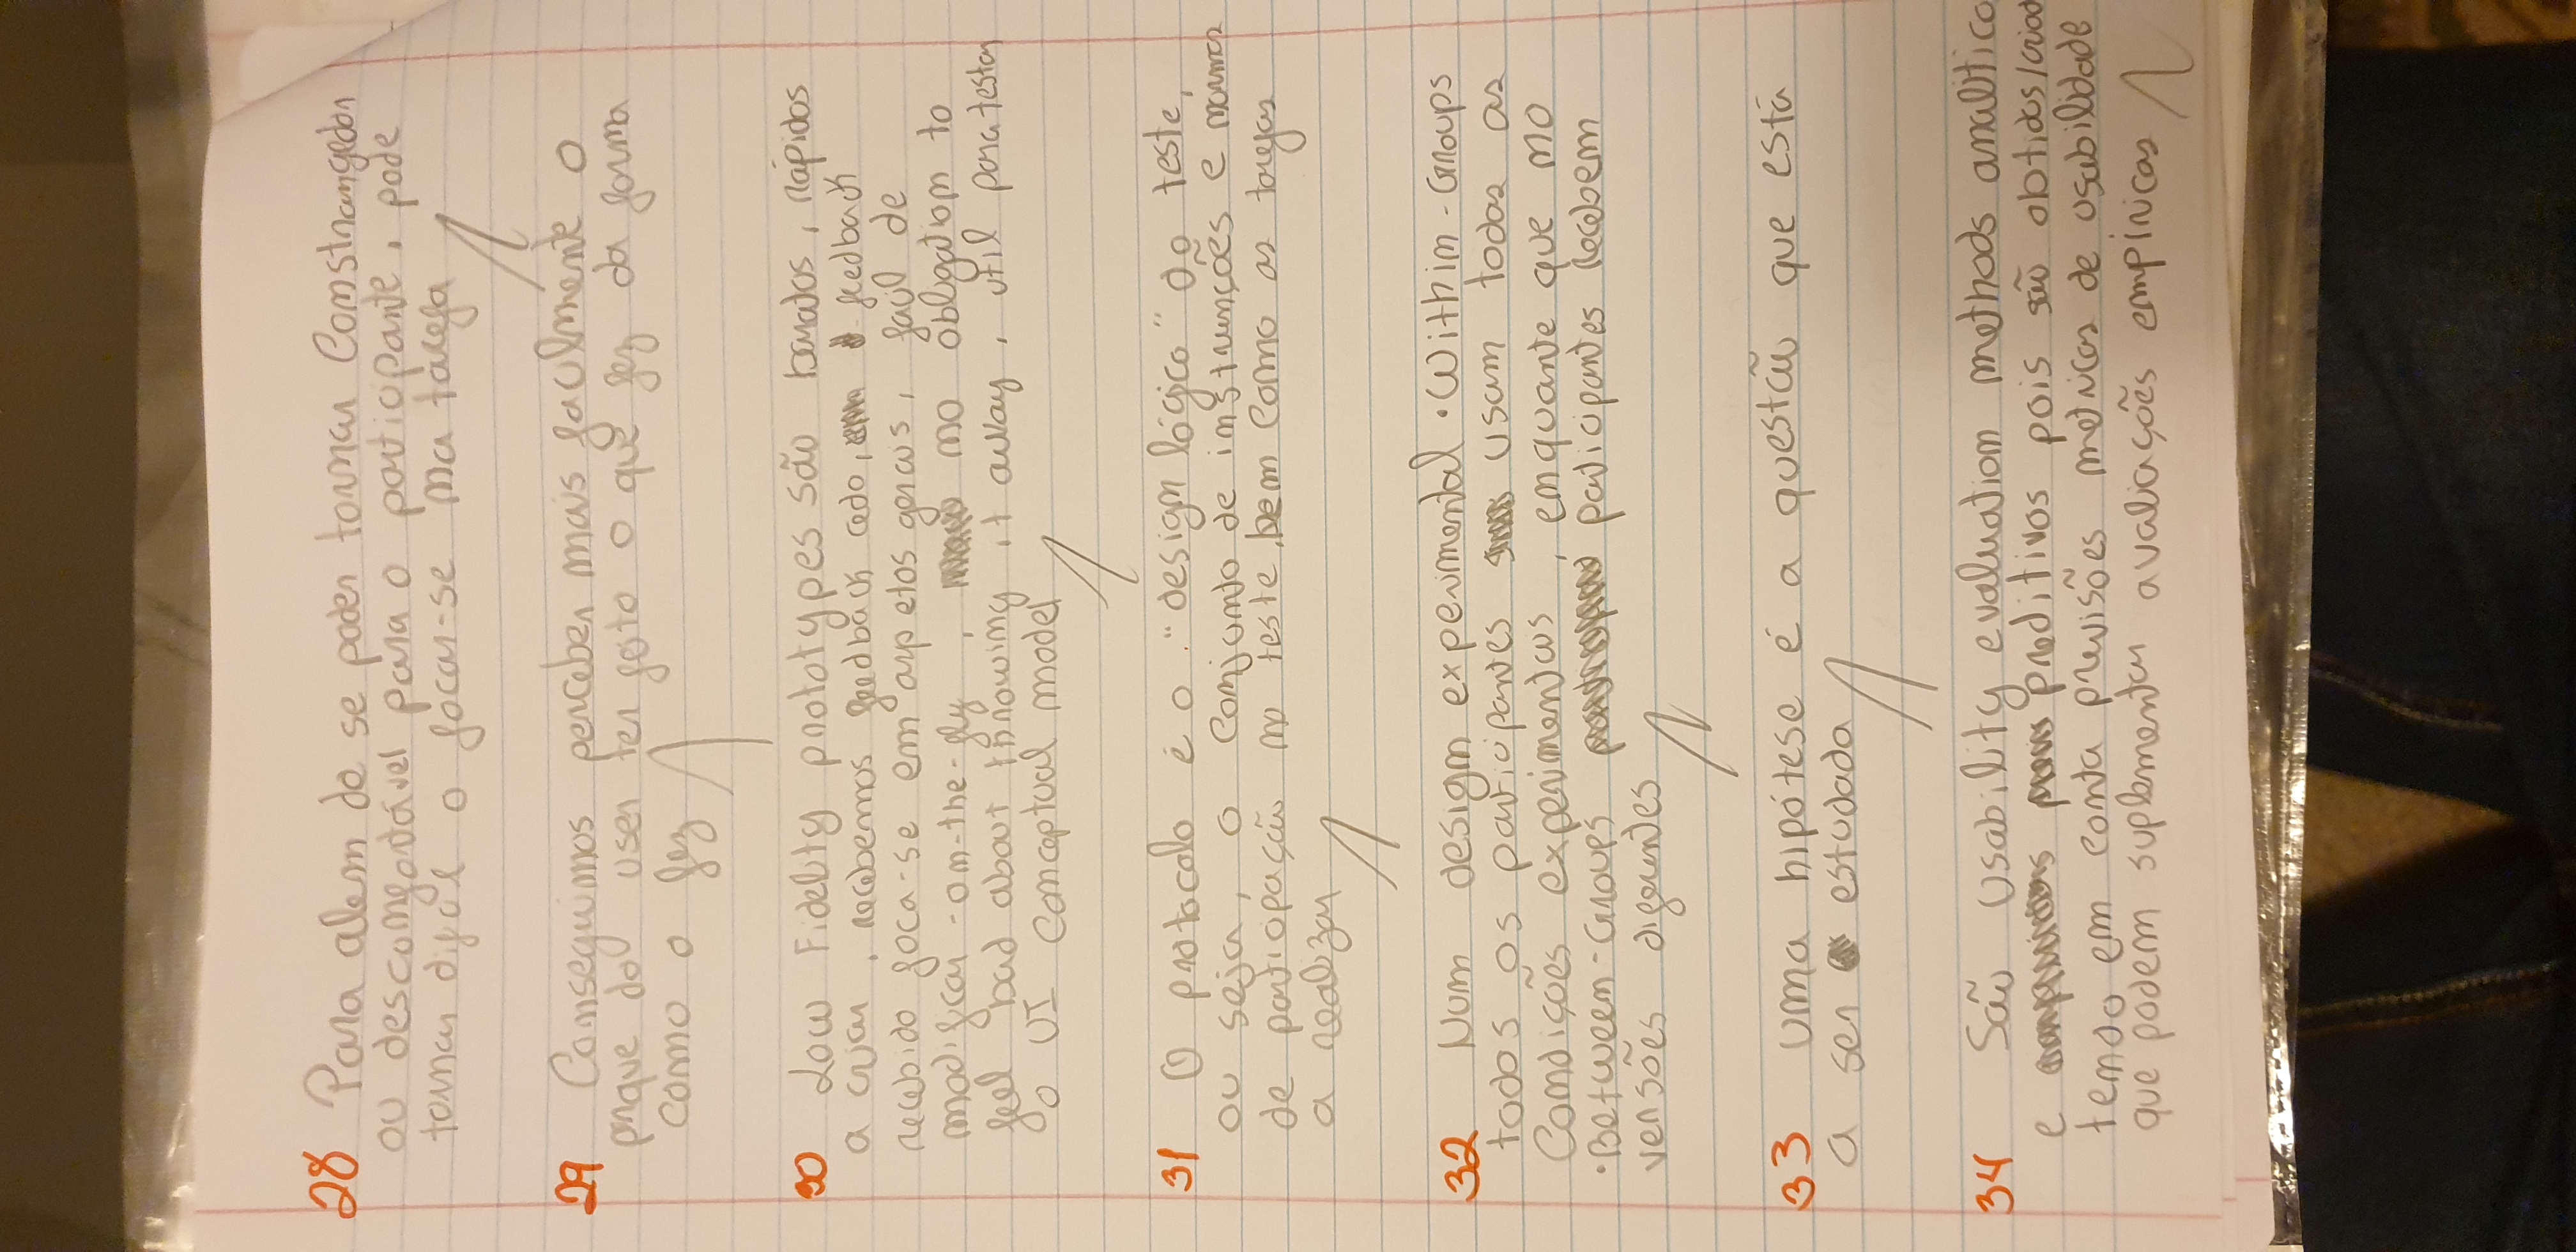 28 Para alem de se poder tornar Constrangedor
ou desconfortável para o participante, pode
tornar difícil o focar-se na tarefa
29 Conseguimos perceber mais facilmente o
porque do user ter feito o que fez da forma
como o fez
30 Low Fidelity prototypes são baratos, rápidos
a criar, recebemos feedback cedo, feedback
recebido foca-se em aspetos gerais, facil de
modificar -on-the-fly, no obligation to
feel bad about throwing it away, util para testar
o UI Conceptual model
31 O protocolo é o "design lógico" do teste,
ou seja, o conjunto de instrunções e normas
de participação no teste, bem como as tarefas
a realizar
32 Num design experimental •Within-Groups
todos os participantes usam todas as
Condições experimentais, enquante que no
•Between-Groups participantes recebem
versões diferentes
33 Uma hipótese é a questão que está
a ser estudada
34 São Usability evaluation methods analitico
e preditivos pois são obtidos/criad
tendo em conta previsões metricas de usabilidade
que podem suplementar avaliações empíricas